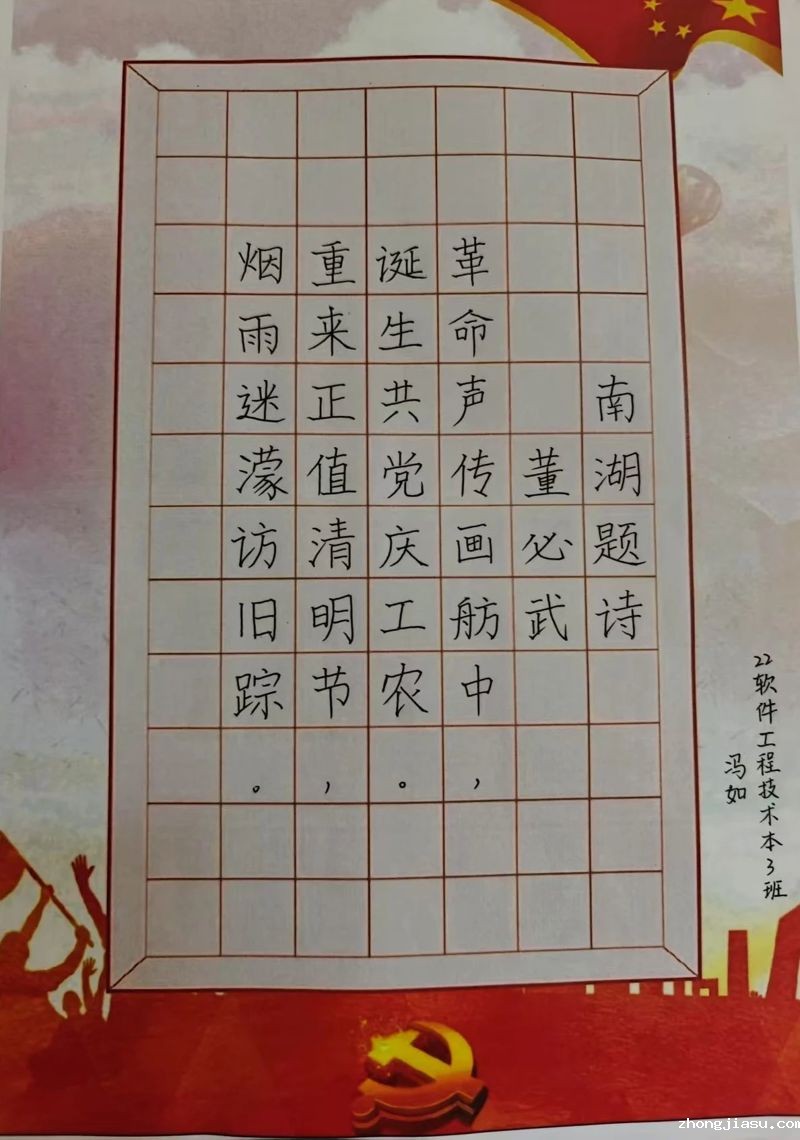 南湖题诗
董必武
革命声传画舫中，
诞生共党庆工农。
重来正值清明节，
烟雨迷濛访旧踪。
22软件工程技术本3班
冯如
zhongjiasu.com